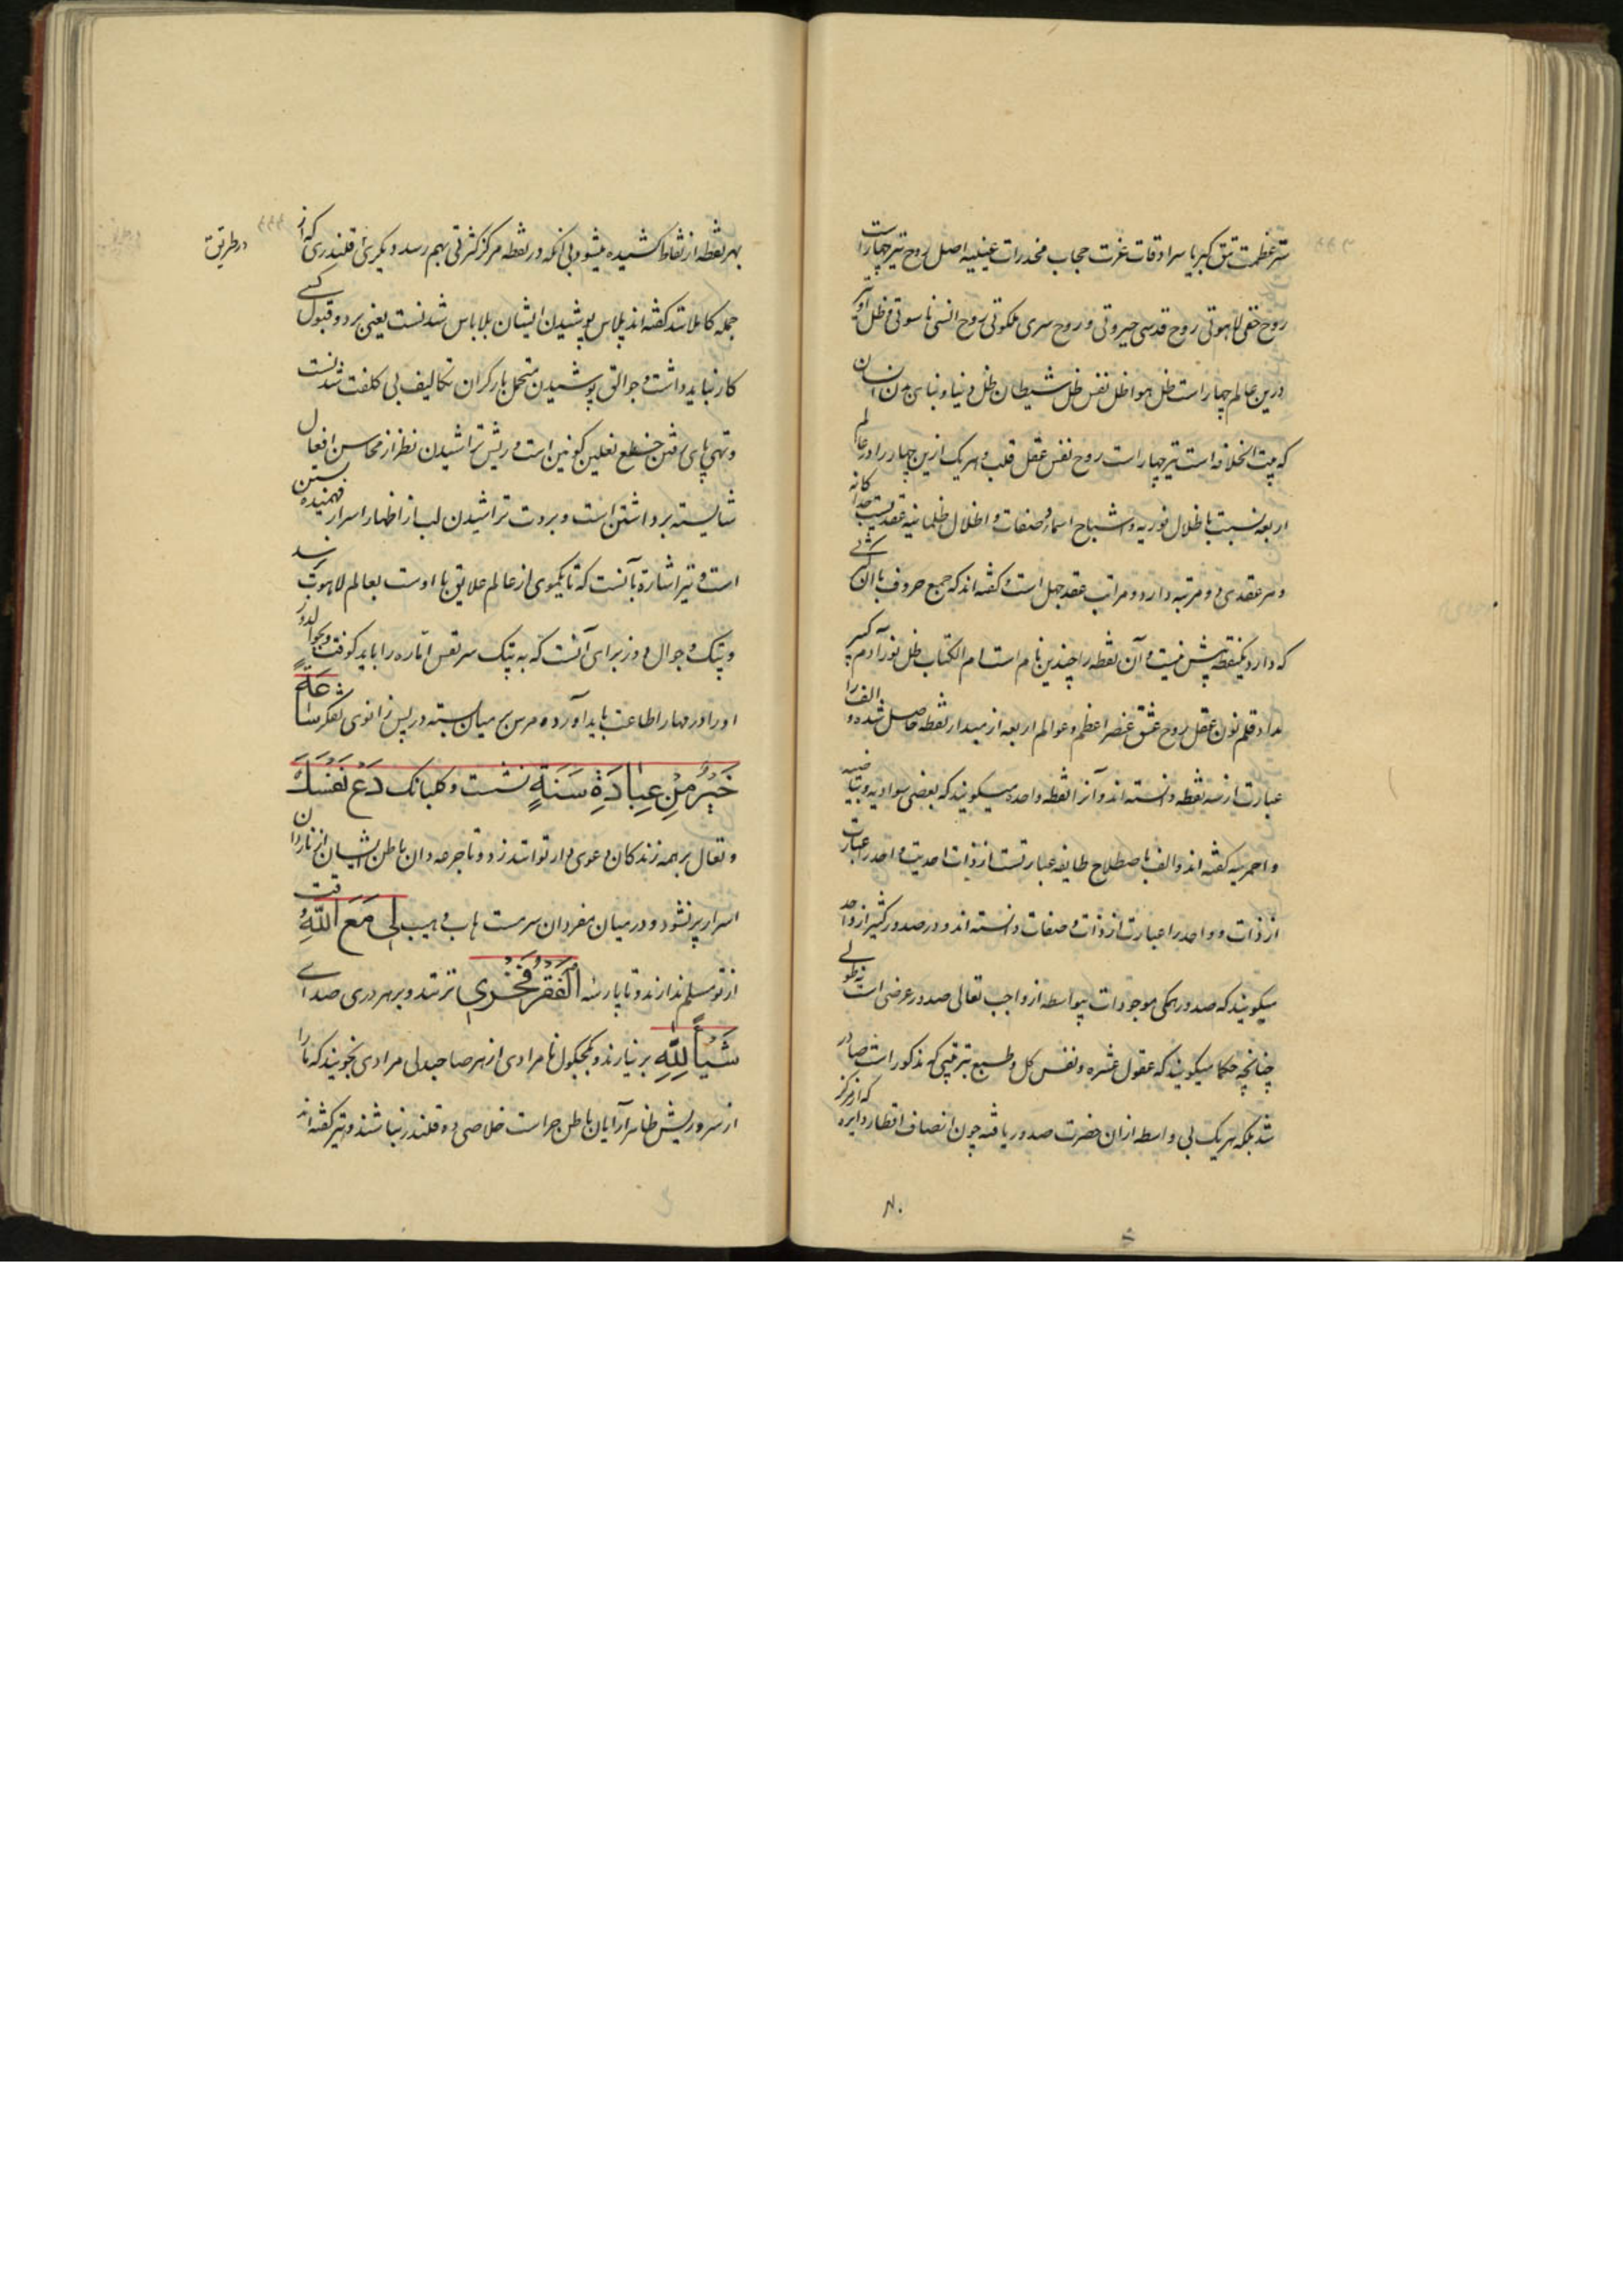 ستر عظمت تتق کبریا سرادقات عزت حجاب مخدرات غیبیه اصل روح نیز چهار است
روح خفی لاهوتی روح قدسی جبروتی و روح سری ملکوتی روح انسی ناسوتی و ظل او نیز
درین عالم چهار است ظل هوا ظل نفس ظل شیطان ظل دنیا و بنای بدن انسان
که بیت الخلافه است نیز چهار است روح نفس عقل قلب و هر یک ازین چهار را در عالم
اربعه نسبت با ظلال نوریه و اشباح اسما و صفات و اظلال ظلمانیه عقدیست جداکانه
و هر عقدی دو مرتبه دارد و مراتب عقد جمل است و کفته اند که جمع حروف با آن کثرتی
که دارد یکنقطه بیش نیست و آن نقطه را چندین نام است ام الکتاب ظل نور آدم کبیر
مداد قلم نون عقل روح عشق عنصر اعظم و عوالم اربعه از مبدا نقطه حاصل شده و الف را
عبارت از سه نقطه دانسته اند و آنرا نقطه واحده میکویند که بعضی سوادیه و بیاضیه
و احمریه کفته اند و الف باصطلاح طایفه عبارتست از ذات احدیت و احد را عبارت
از ذات و واحد را عبارت از ذات و صفات دانسته اند و در صدور کثیر از واحد
میکویند که صدور همکی موجودات بیواسطه از واجب تعالی صدور عرضی است نه طولی
چنانچه حکما میکویند که عقول عشره و نفس کل و طبع بترتیبی که مذکور است صادر
شد بلکه هر یک بی واسطه ازان حضرت صدور یافته چون انصاف اقطار دایره که از مرکز
بهر نقطه از نقاط کشیده میشود بی آنکه در نقطه مرکز کثرتی بهم رسد دیکر بی قلندری که از
جمله کاملا شد کفته اند پلاس پوشیدن ایشان بلاباس شدنست یعنی برد و قبول کسی
کار نباید داشت و جوالق پوشیدن متحمل بار کران تکالیف بی کلفت شدنست
و تهی پای رفتن خلع نعلین کونین است و ریش تراشیدن نظر از محاسن افعال
شایسته برداشتن است و بروت تراشیدن لب از اظهار اسرار فهمیده بستن
است و نیز اشارة بآنست که تا یکموی از عالم علایق با اوست بعالم لاهوت رسد
و پتک و جوال دوز برای آنست که به پتک سر نفس اماره را باید کوفت و بجوالدوز
او را در مهار اطاعت باید آورد و مرس بر میان بسته در پس زانوی تفکر ساعَةٍ
خَیْرٌ مِنْ عِبادَةِ سَنَةٍ نشست و کلبانک دَعْ نَفْسَكَ
و تعال بر همه زندکان دعوی دار توانند زد و تا جرعه دان باطن ایشان از ناردان
اسرار پر نشود و در میان مفردان سرمست هاب و هیب لی مَعَ اللّهِ وقت
از تو مسلم ندارند و تا پارسه الْفَقْرُ فَخْری نزنند و بر هر دری صدای
شَیْأً لِلّهِ بر نیارند و بکجکول نامرادی از هر صاحبدلی مرادی نجویند که ما را
از سر و ریش ظاهر آرایان باطن خلاصی ده قلندر نباشند و نیز کفته اند
در طریق